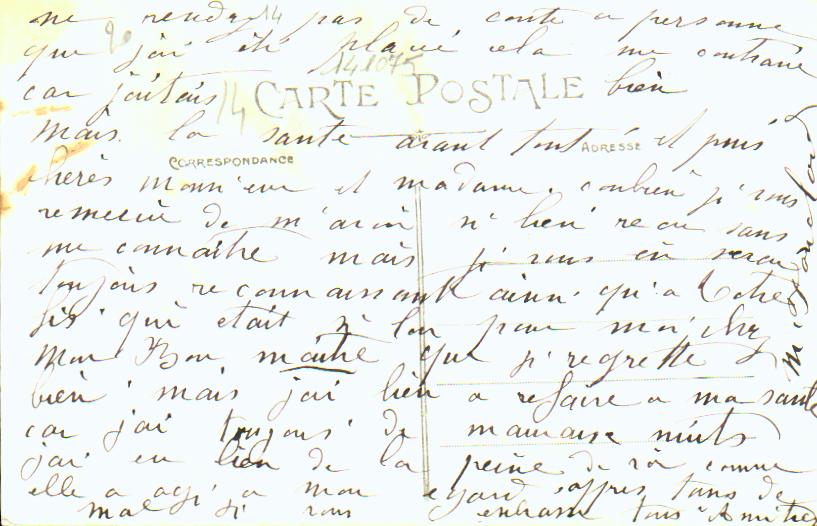 ne rendez pas de conte a personne
que jai été placé cela me contrarie
14
90
141075
car jaitais bien
14
CARTE POSTALE
mais la santé avant tout et puis
CORRESPONDANCE
ADRESSE
cheres monsieur et madame. combien je vous
remercie de m'avoir si bien recu sans
me connaitre mais je vous en serai
toujours reconnaissant ainsi qu'a votre
fils qui etait si bon pour moi cher
mon Bon maitre que je regrette
bien mais jai bien a refaire a ma santé
car jai toujours de mauvaise nuits
jai eu bien de la peine de voir comme
elle a agi a mon egard apres tans de
mal je vous embrasse tous Amities